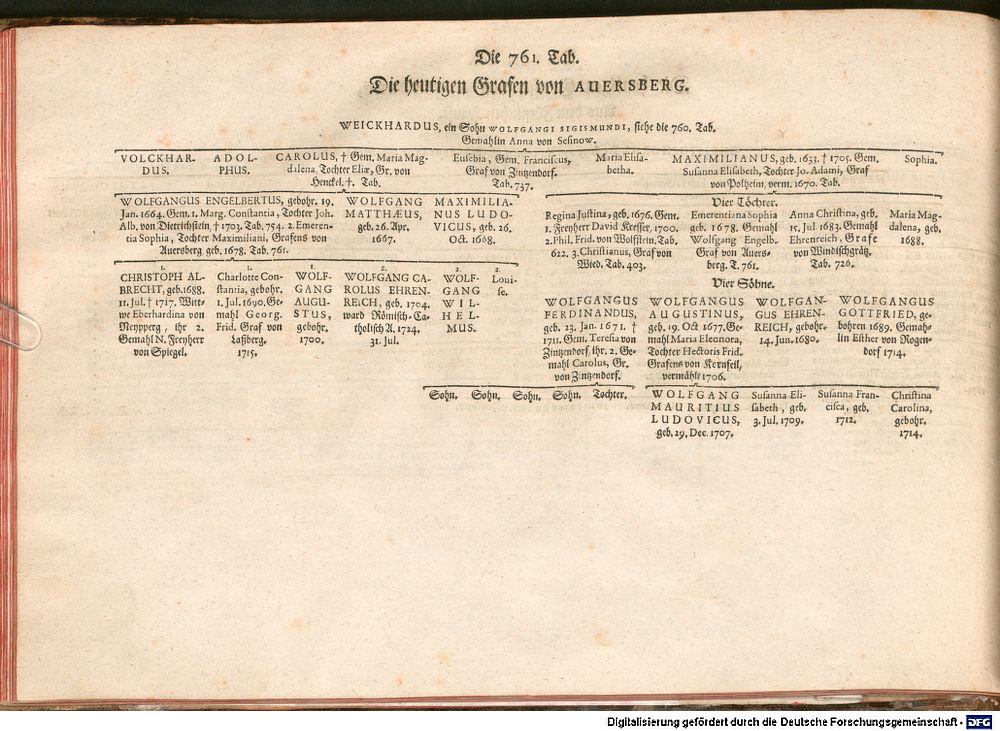 Die 761. Tab.
Die heutigen Grafen von AUERSBERG.
WEICKHARDUS, ein Sohn WOLFGANGI SIGISMUNDI, siehe die 760. Tab.
Gemahlin Anna von Sesinow.
VOLCKHAR-
DUS.
ADOL-
PHUS.
CAROLUS, † Gem. Maria Mag-
dalena, Tochter Eliæ, Gr. von
Henckel. †. Tab.
Eusebia, Gem. Franciscus,
Graf von Zintzendorf.
Tab. 737.
Maria Elisa-
betha.
MAXIMILIANUS, geb. 1633. † 1705. Gem.
Susanna Elisabeth, Tochter Jo. Adami, Graf
von Polheim, verm. 1670. Tab.
Sophia.
WOLFGANGUS ENGELBERTUS, gebohr. 19.
Jan. 1664. Gem. 1. Marg. Constantia, Tochter Joh.
Alb. von Dietrichstein, † 1703. Tab. 754. 2. Emeren-
tia Sophia, Tochter Maximiliani, Grafens von
Auersberg, geb. 1678. Tab. 761.
WOLFGANG
MATTHÆUS,
geb. 26. Apr.
1667.
MAXIMILIA-
NUS LUDO-
VICUS, geb. 26.
Oct. 1668.
Vier Töchter.
Regina Justina, geb. 1676. Gem.
1. Freyherr David Kresser, 1700.
2. Phil. Frid. von Wolfstein, Tab.
622. 3. Christianus, Graf von
Wied. Tab. 403.
Emerentiana Sophia
geb. 1678. Gemahl
Wolfgang Engelb.
Graf von Auers-
berg. T. 761.
Anna Christina, geb.
15. Jul 1683. Gemahl
Ehrenreich, Grafe
von Windischgrätz,
Tab. 726.
Maria Mag-
dalena, geb.
1688.
1.
CHRISTOPH AL-
BRECHT, geb. 1688.
11. Jul. † 1717. Witt-
we Eberhardina von
Neypperg, ihr 2.
Gemahl N. Freyherr
von Spiegel.
1.
Charlotte Con-
stantia, gebohr.
1. Jul. 1690. Ge-
mahl Georg.
Frid. Graf von
Laßberg.
1715.
1.
WOLF-
GANG
AUGU-
STUS,
gebohr.
1700.
2.
WOLFGANG CA-
ROLUS EHREN-
REICH, geb. 1704.
ward Römisch-Ca-
tholisch A. 1724.
31. Jul.
2.
WOLF-
GANG
WIL-
HEL-
MUS.
2.
Loui-
se.
Vier Söhne.
WOLFGANGUS
FERDINANDUS,
geb. 23. Jan. 1671. †
1711. Gem. Teresia von
Zintzendorf, ihr. 2. Ge-
mahl Carolus, Gr.
von Zintzendorf.
WOLFGANGUS
AUGUSTINUS,
geb. 19. Oct 1677. Ge-
mahl Maria Eleonora,
Tochter Hectoris Frid.
Grafens von Kornfeil,
vermählt 1706.
WOLFGAN-
GUS EHREN-
REICH, gebohr.
14. Jun. 1680.
WOLFGANGUS
GOTTFRIED, ge-
bohren 1689. Gemah-
lin Esther von Rogen-
dorf 1714.
Sohn. Sohn. Sohn. Sohn. Tochter.
WOLFGANG
MAURITIUS
LUDOVICUS,
geb. 29. Dec. 1707.
Susanna Eli-
sabeth, geb.
3. Jul. 1709.
Susanna Fran-
cisca, geb.
1712.
Christina
Carolina,
gebohr.
1714.
Digitalisierung gefördert durch die Deutsche Forschungsgemeinschaft - DFG